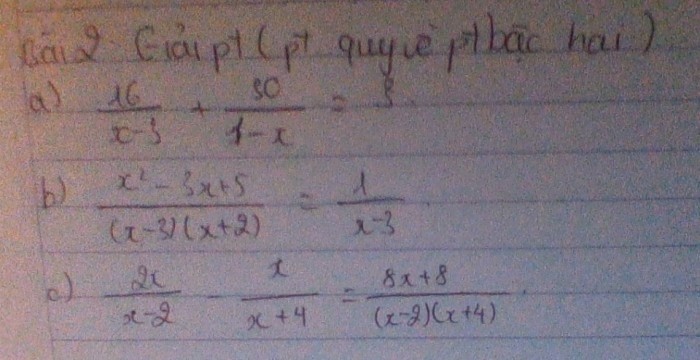 Bài 2. Giải pt (pt quy về pt bậc hai)
a) 16/(x-3) + 30/(1-x) = 3.
b) (x² - 3x + 5)/((x-3)(x+2)) = 1/(x-3)
c) 2x/(x-2) - x/(x+4) = (8x+8)/((x-2)(x+4)).